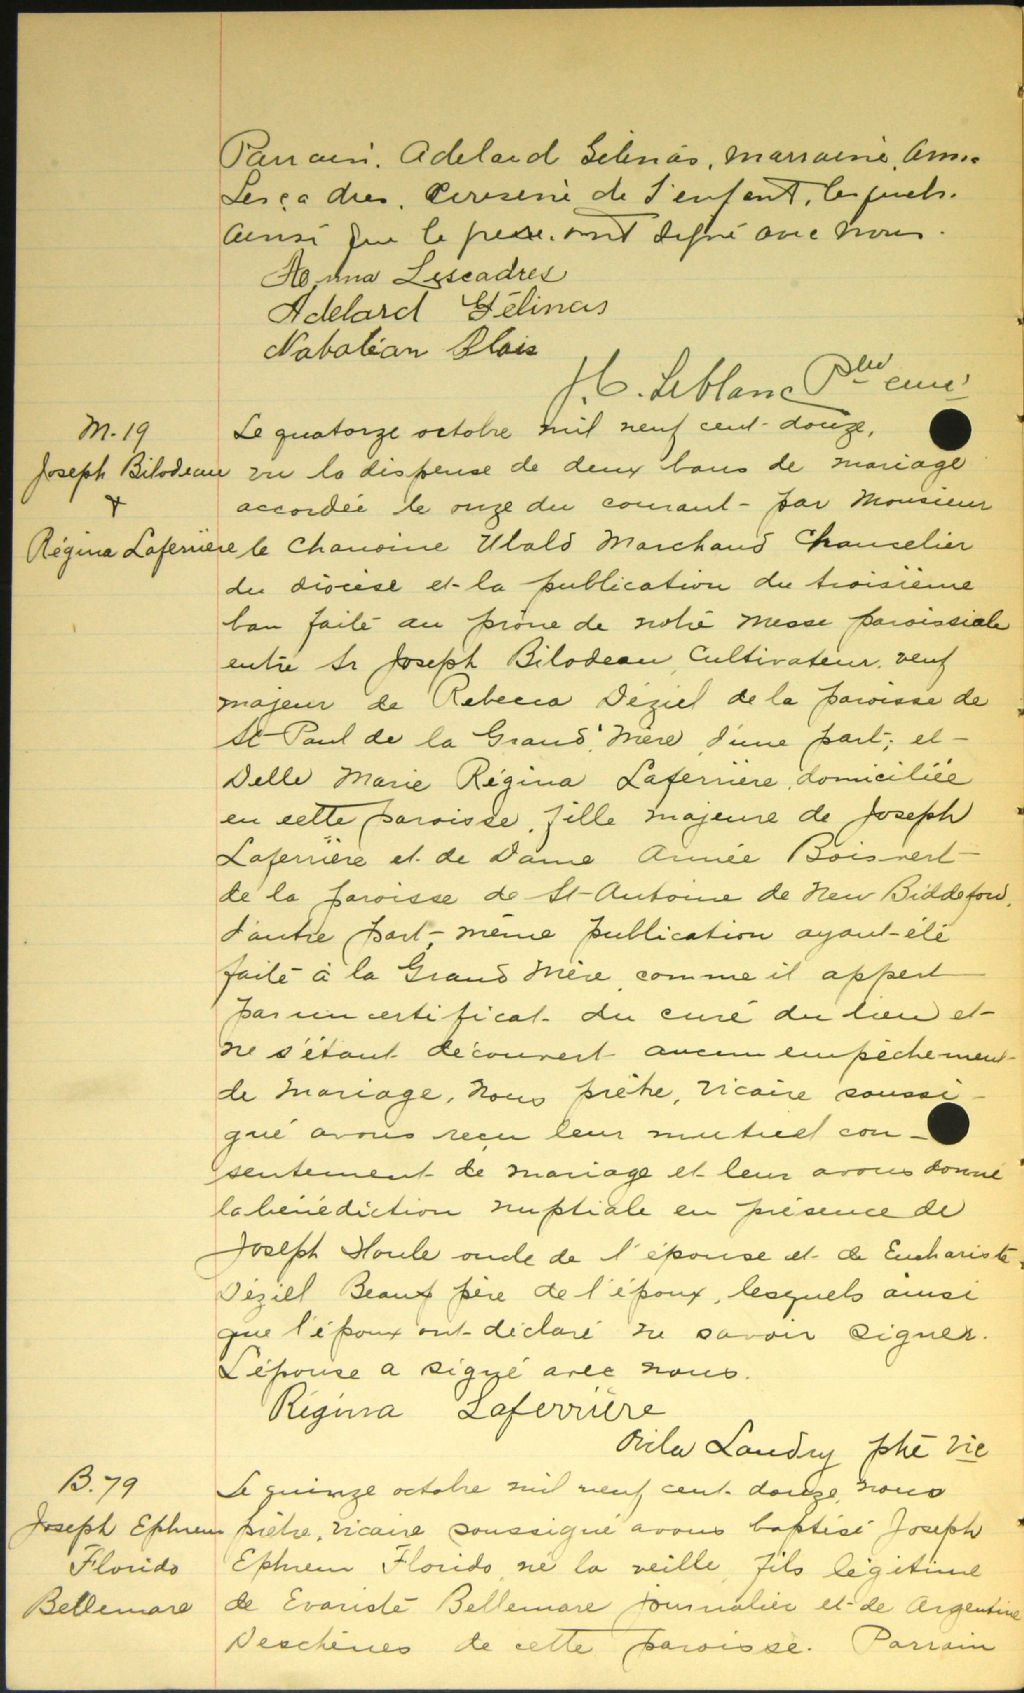 Parrain. Adelard Gélinas, marraine Anna
Lescadres, cousine de l'enfant, lesquels.
ainsi que le père. ont signé avec nous.
Anna Lescadres
Adelard Gélinas
Nabaléan Blais
J. C. Leblanc Ptre curé
M. 19
Joseph Bilodeau
&
Régina Laferrière
Le quatorze octobre mil neuf cent douze,
vu la dispense de deux bans de mariage
accordée le onze du courant par Monsieur
le Chanoine Ubald Marchand Chancelier
du diocèse et la publication du troisième
ban faite au prône de notre messe paroissiale
entre Sr Joseph Bilodeau, Cultivateur, veuf
majeur de Rebecca Déziel de la paroisse de
St Paul de la Grand'Mère, d'une part; et
Delle Marie Régina Laferrière, domiciliée
en cette paroisse, fille majeure de Joseph
Laferrière et de Dame Année Boisvert
de la paroisse de St Antoine de New Biddeford,
d'autre part, même publication ayant été
faite à la Grand Mère, comme il appert
par un certificat du curé du lieu et
ne s'étant découvert aucun empêchement
de mariage, Nous prêtre, vicaire soussi-
gné avons reçu leur mutuel con-
sentement de mariage et leur avons donné
la bénédiction nuptiale en présence de
Joseph Houle oncle de l'épouse et de Euchariste
Déziel Beaux père de l'époux, lesquels ainsi
que l'époux ont déclaré ne savoir signer.
L'épouse a signé avec nous.
Régina Laferrière
Orila Landry ptre vic
B. 79
Joseph Ephrem
Florido
Bellemare
Le quinze octobre mil neuf cent douze, nous
prêtre, vicaire soussigné avons baptisé Joseph
Ephrem Florido, né la veille, fils légitime
de Evariste Bellemare journalier et de Argentine
Deschènes de cette paroisse. Parrain